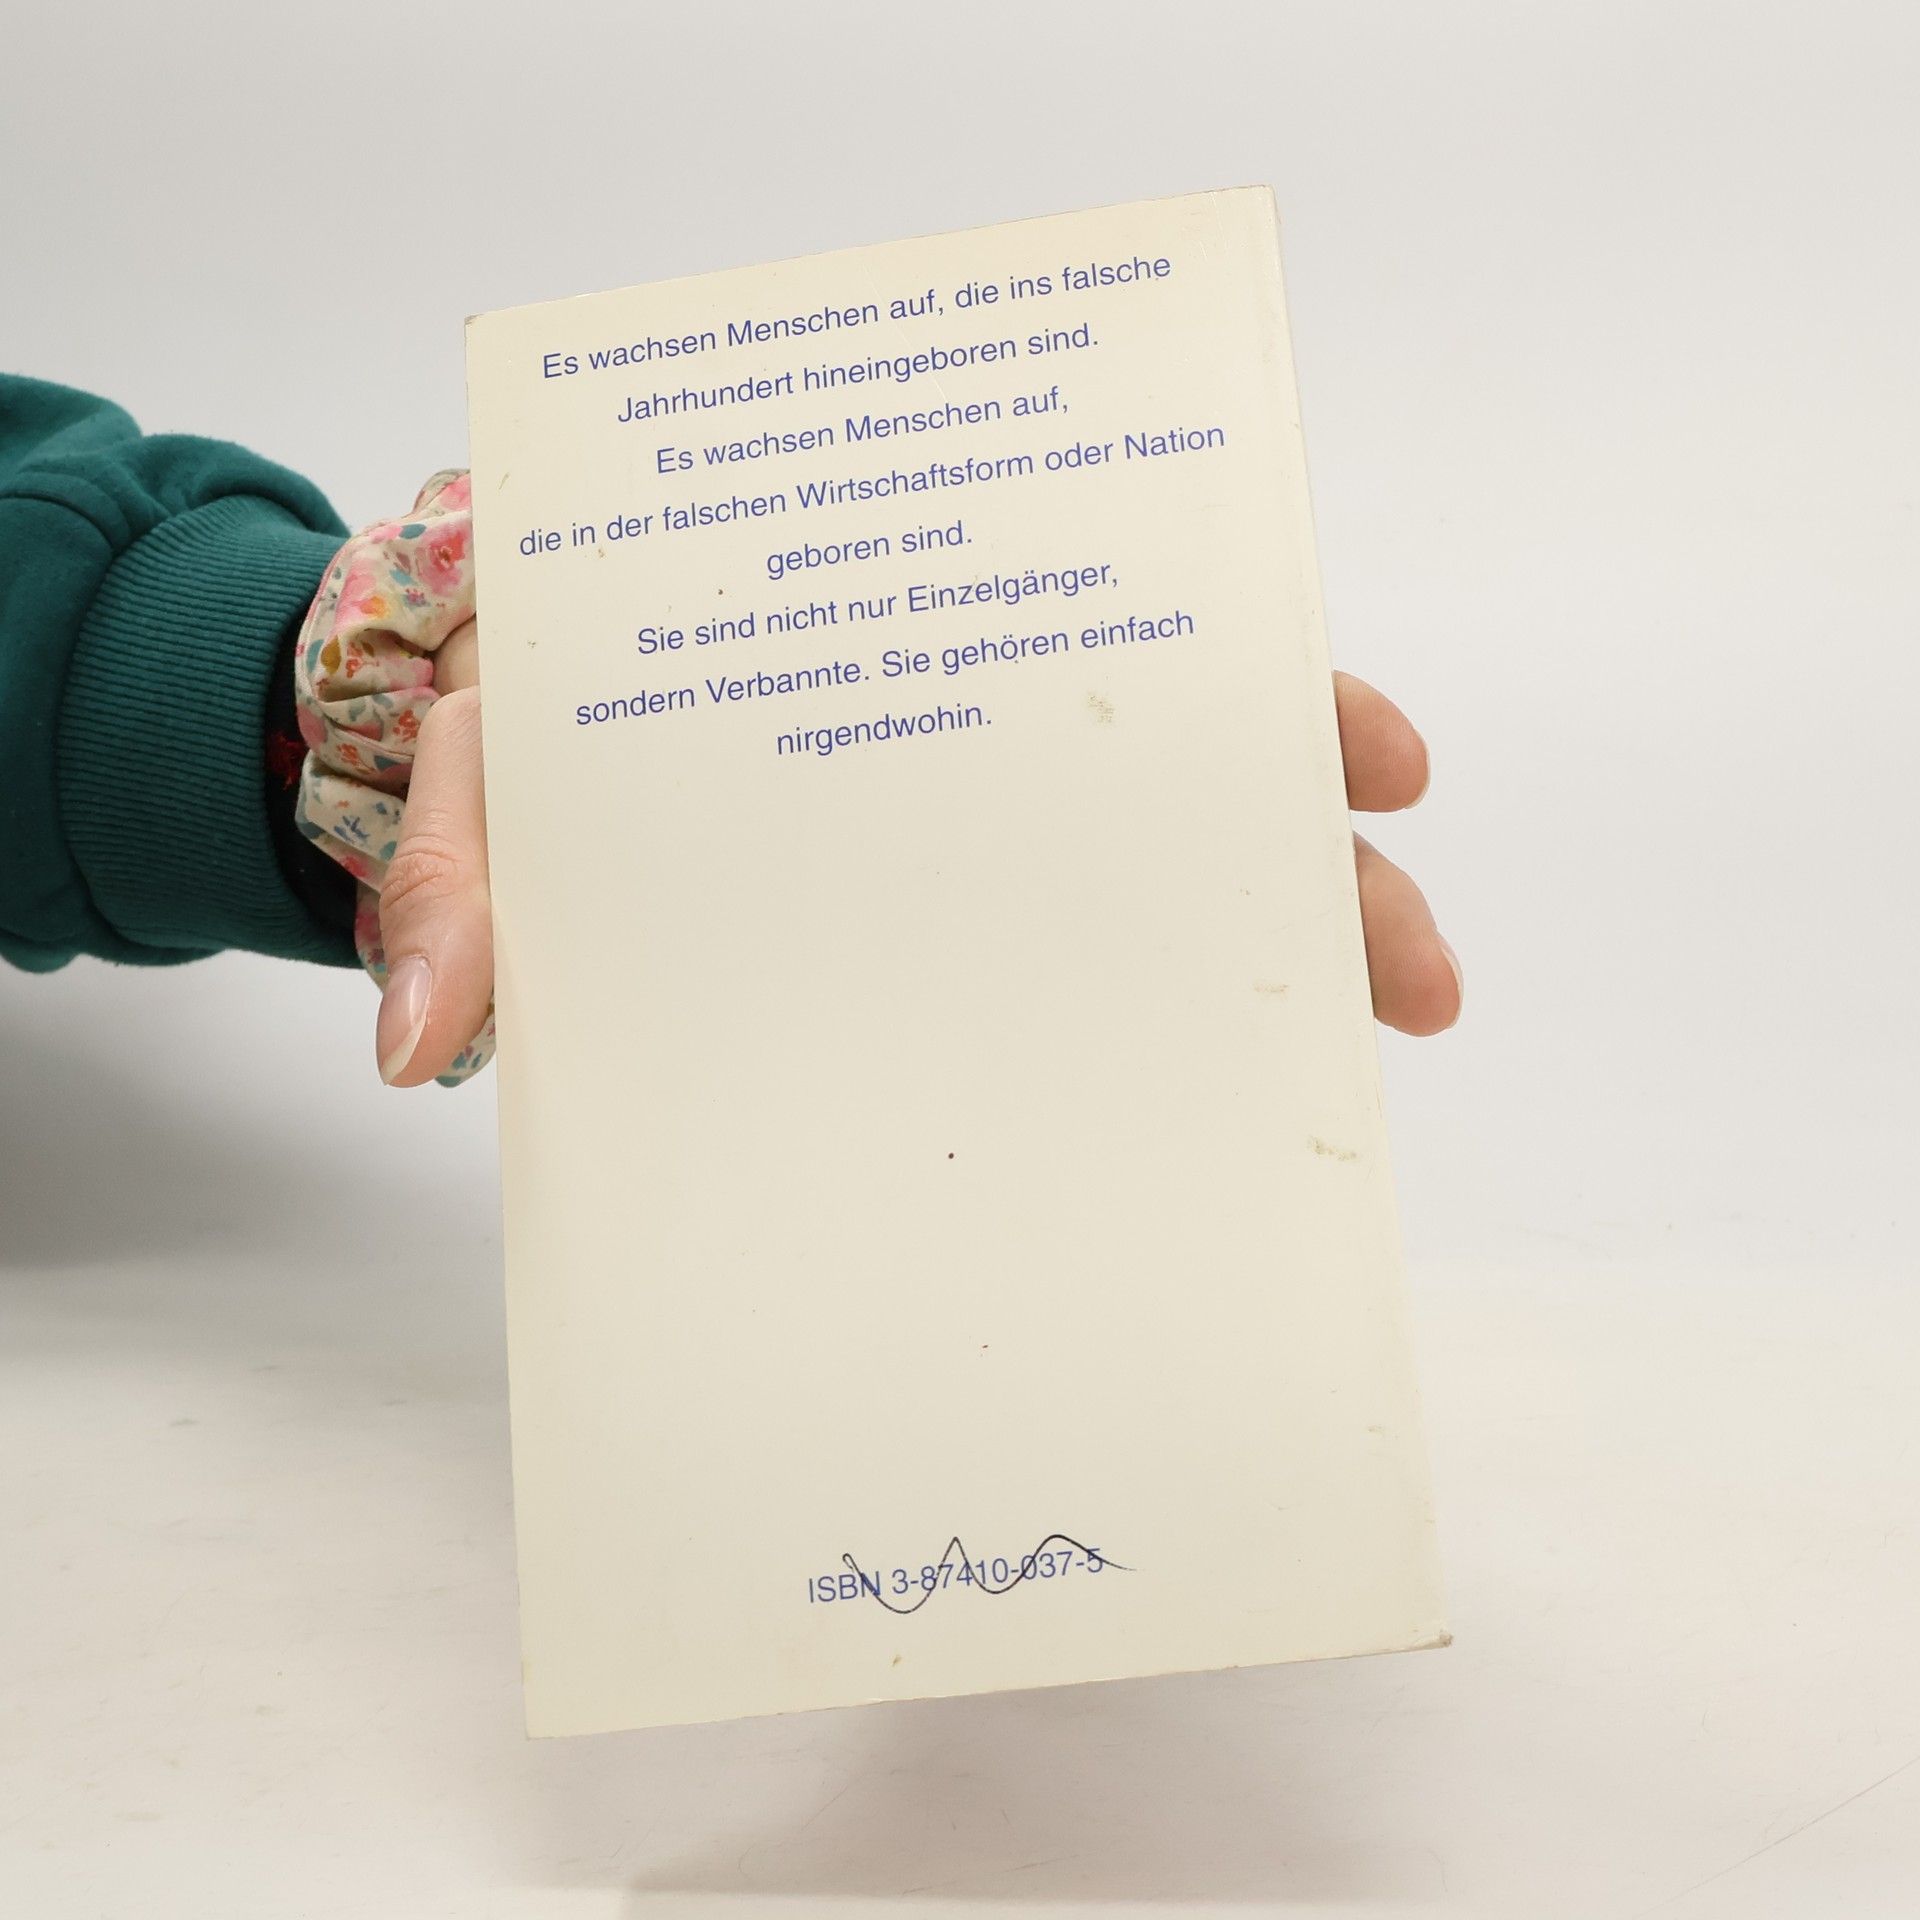 Es wachsen Menschen auf, die ins falsche
Jahrhundert hineingeboren sind.
Es wachsen Menschen auf,
die in der falschen Wirtschaftsform oder Nation
geboren sind.
Sie sind nicht nur Einzelgänger,
sondern Verbannte. Sie gehören einfach
nirgendwohin.
ISBN 3-87410-037-5